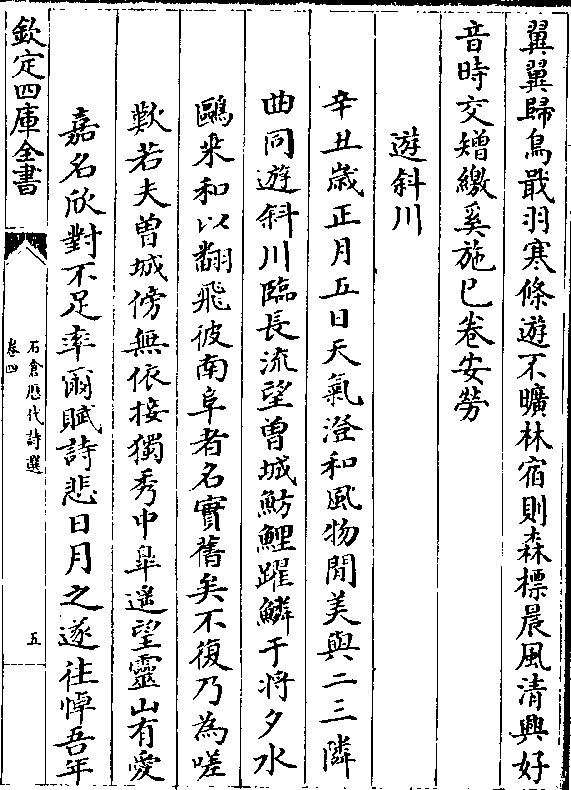 翼翼歸鳥戢羽寒條遊不曠林宿則森標晨風清興好
音時交矰繳奚施已卷安勞
遊斜川
辛丑歲正月五日天氣澄和風物閒美與二三隣
曲同遊斜川臨長流望曾城魴鯉躍鱗于將夕水
鷗来和以翻飛彼南阜者名實舊矣不復乃為嗟
歎若夫曾城傍無依接獨秀中臯遥望靈山有愛
嘉名欣對不足率爾賦詩悲日月之遂往悼吾年
欽定四庫全書
石倉歷代詩選
卷四
五